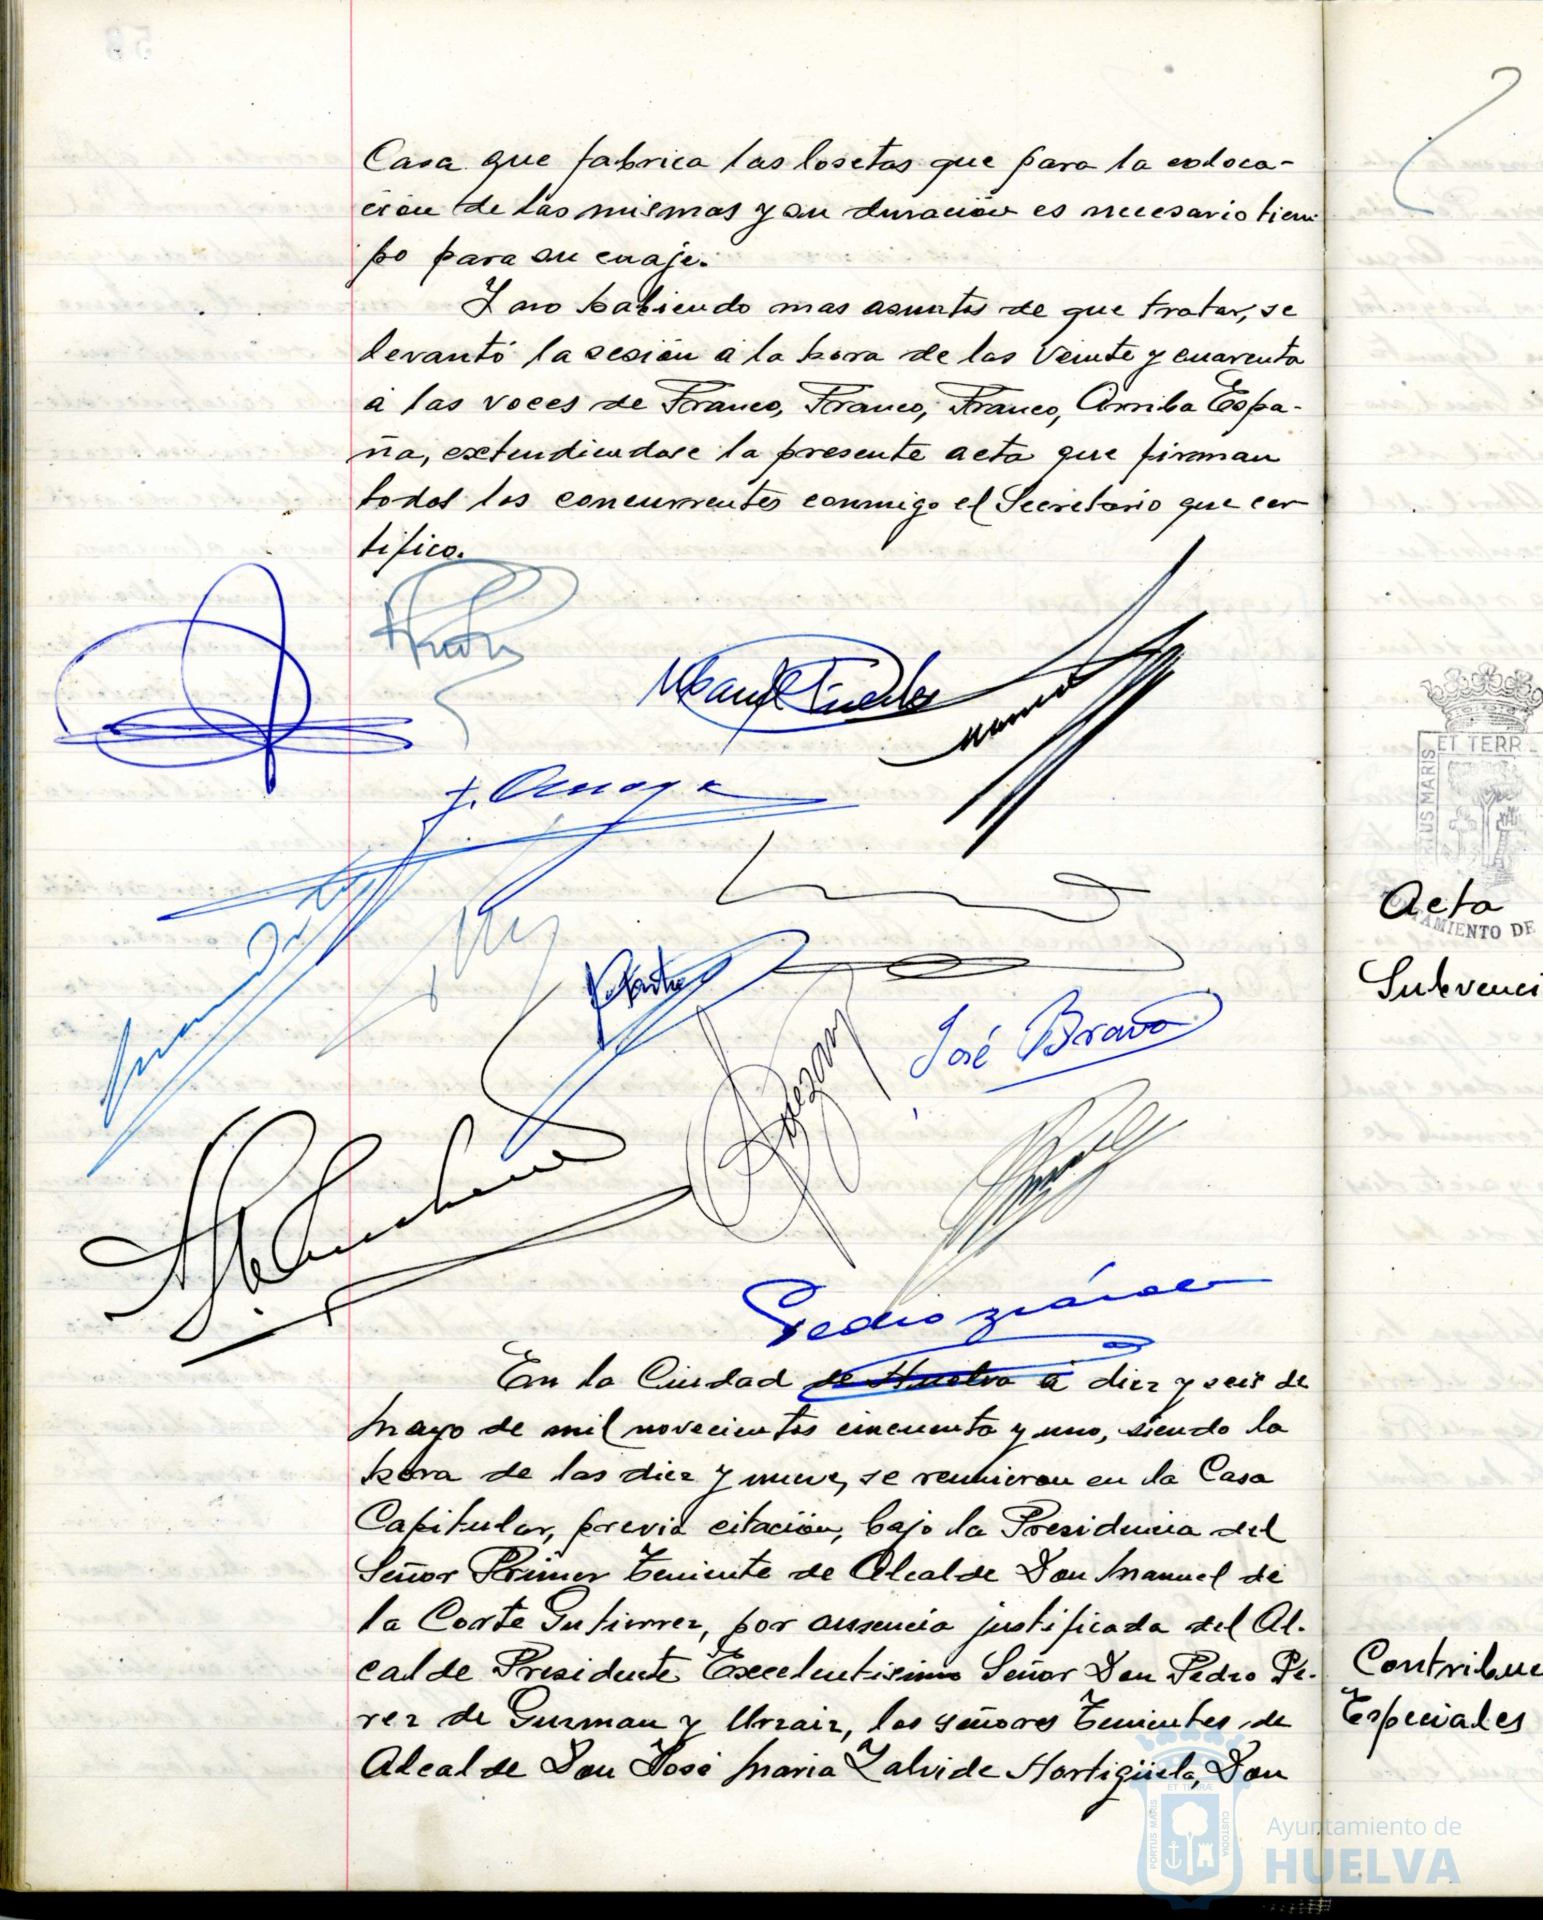 Casa que fabrica las losetas que para la coloca-
ción de las mismas y su duración es necesario tiem
po para su cuaje.
Y no habiendo mas asuntos de que tratar, se
levantó la sesión a la hora de las veinte y cuarenta
a las voces de Franco, Franco, Franco, Arriba Espa-
ña, extendiendose la presente acta que firman
todos los concurrentes conmigo el Secretario que cer
tifico.
José Bravo
En la Ciudad de Huelva a diez y seis de
Mayo de mil novecientos cincuenta y uno, siendo la
hora de las diez y nueve, se reunieron en la Casa
Capitular, previa citación, bajo la Presidencia del
Señor Primer Teniente de Alcalde Don Manuel de
la Corte Gutierrez, por ausencia justificada del Al-
calde Presidente Excelentisimo Señor Don Pedro Pe-
rez de Guzman y Urzaiz, los señores Tenientes de
Alcalde Don José Maria Zalvide Hortigüela, Don
ET TERR
Acta
AMIENTO DE
Subvenci
Contribuc
Especiales
PORTUS MARIS
ET TERRÆ
CUSTODIA
Ayuntamiento de
HUELVA